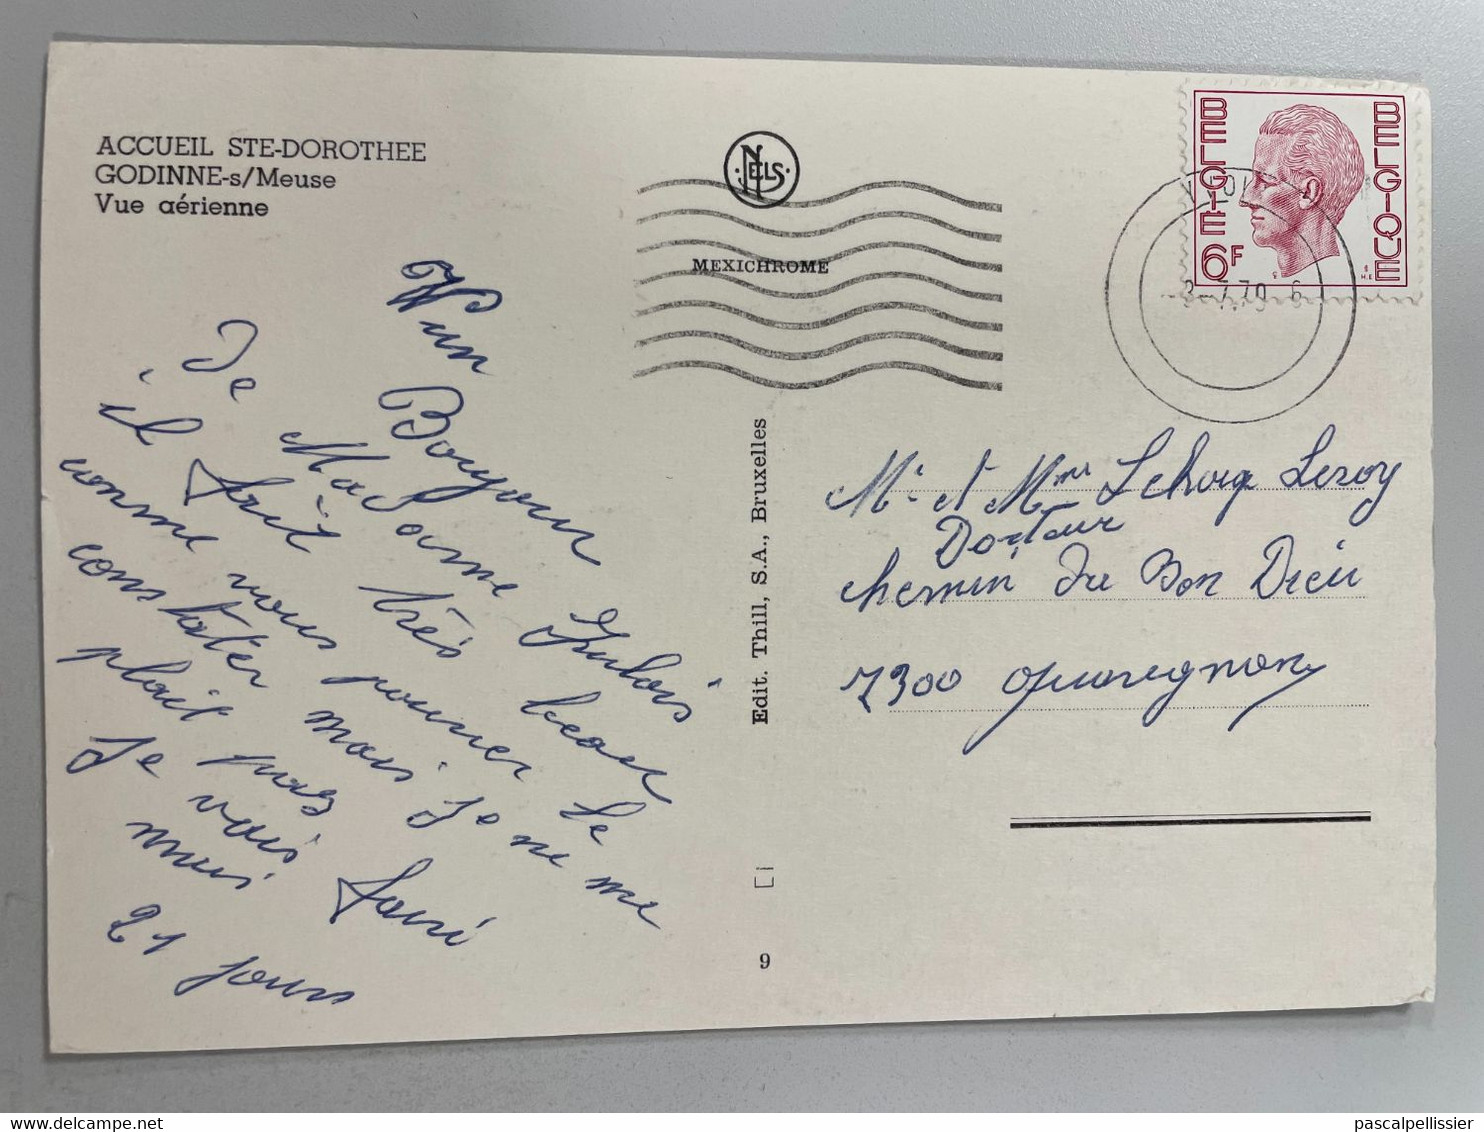 ACCUEIL STE-DOROTHEE
GODINNE-s/Meuse
Vue aérienne
NELS
MEXICHROME
BELGIE
BELGIQUE
6F
7.79 6
un
Bonjour
De Madame Dubois
il fait très beau
comme vous pouvez le
constater mais je ne me
plait pas
je vais faire
mais
21 jours
Edit. Thill, S.A., Bruxelles
9
Mr et Mme Lehocq Leroy
Docteur
chemin du Bon Dieu
7300 Quaregnon
delcampe.net
pascalpellissier